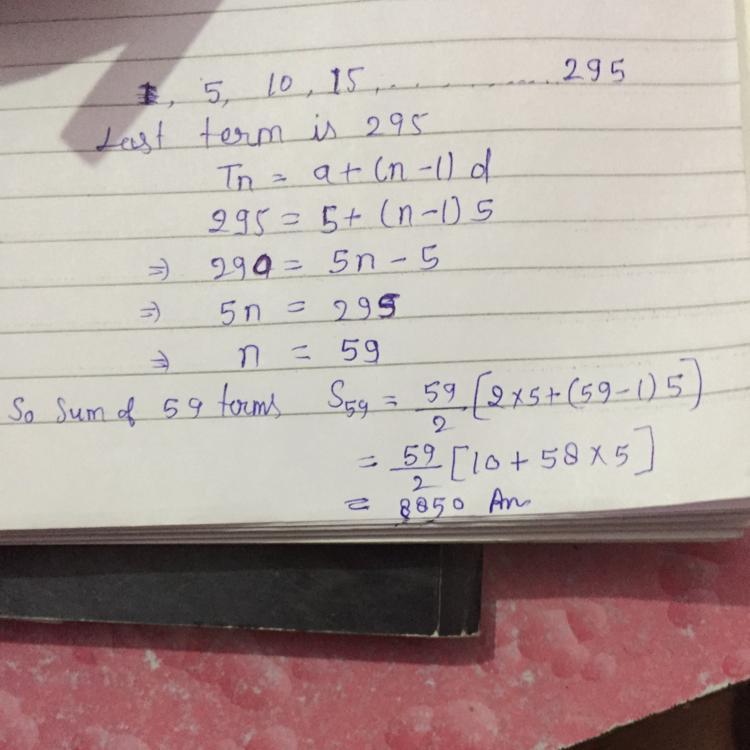 , 5, 10, 15, ................ 295
Last term is 295
Tn = a + (n-1) d
295 = 5 + (n-1) 5
⇒ 290 = 5n - 5
⇒ 5n = 295
⇒ n = 59
So Sum of 59 terms S59 = 59/2 [2×5+(59-1) 5]
= 59/2 [10 + 58 × 5]
= 8850 An